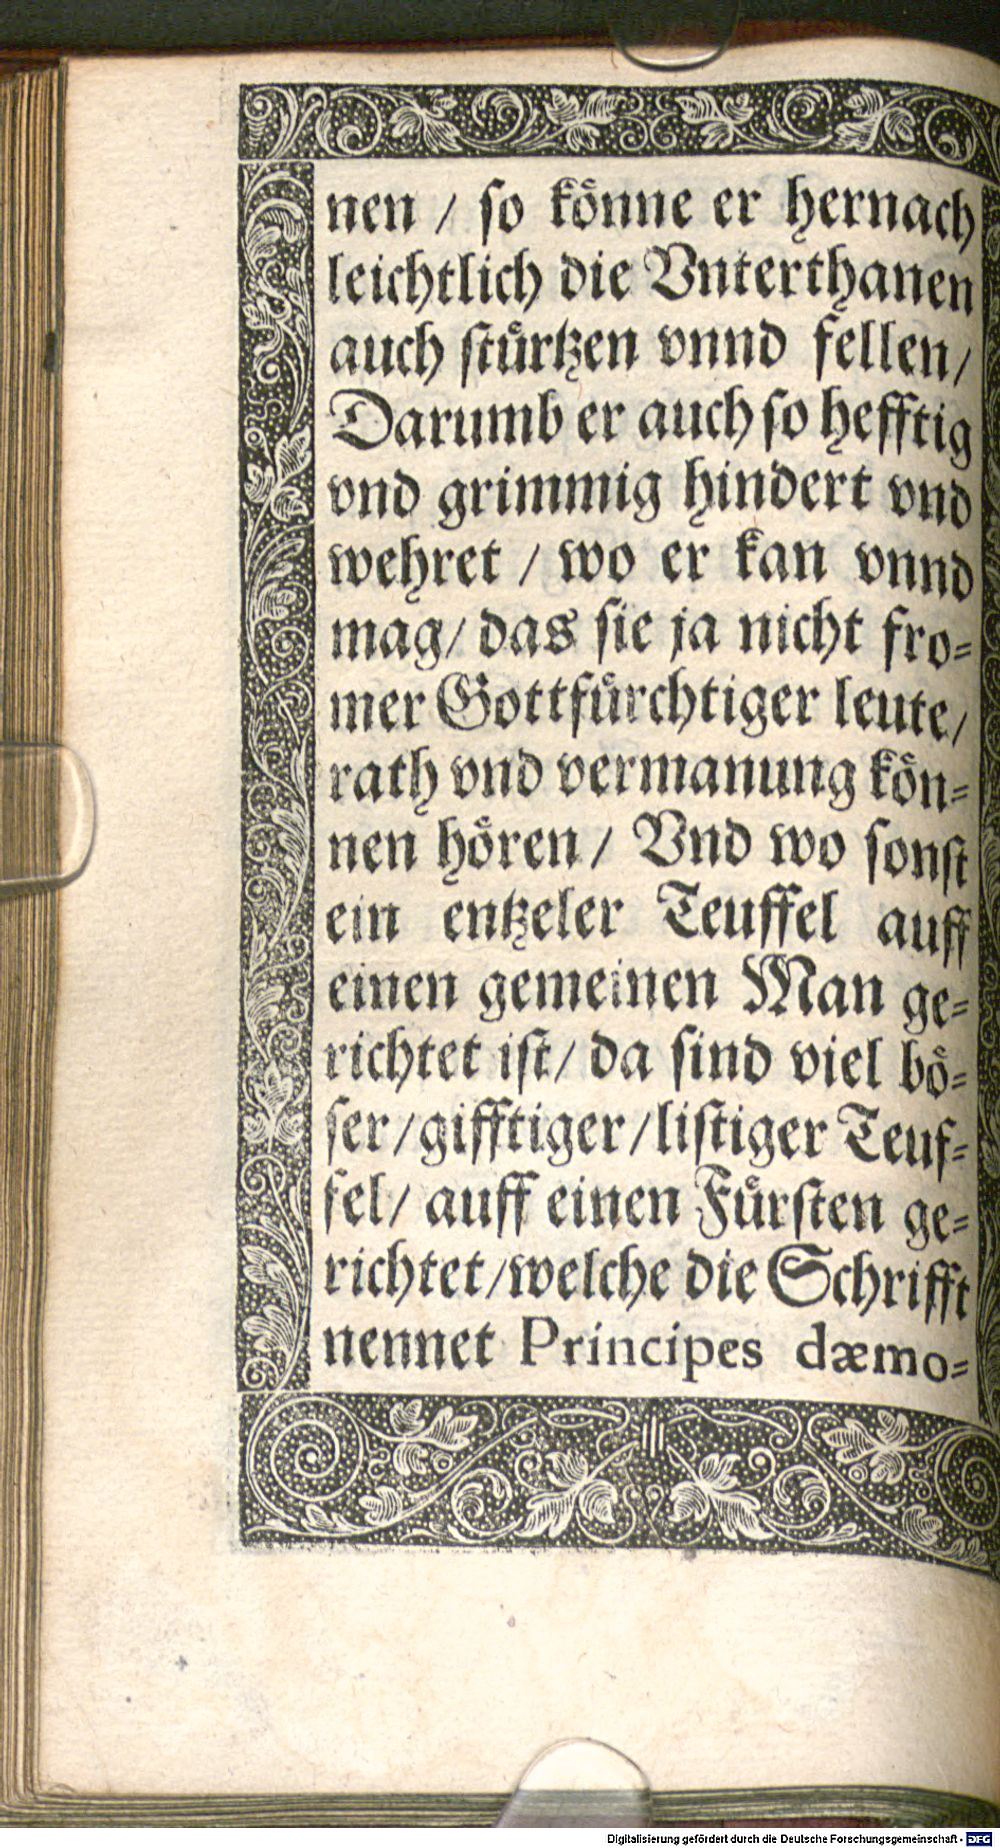 nen / so koͤnne er hernach
leichtlich die Vnterthanen
auch ſtuͤrtzen vnnd fellen/
Darumb er auch ſo hefftig
vnd grimmig hindert vnd
wehret / wo er kan vnnd
mag/ das ſie ja nicht fro⸗
mer Gottfuͤrchtiger leute/
rath vnd vermanung koͤn⸗
nen hoͤren/ Vnd wo ſonſt
ein entzeler Teuffel auff
einen gemeinen Man ge⸗
richtet iſt/ da ſind viel boͤ⸗
ſer/gifftiger/liſtiger Teuf⸗
fel/ auff einen Fuͤrſten ge⸗
richtet/welche die Schrifft
nennet Principes dæmo⸗
Digitalisierung gefördert durch die Deutsche Forschungsgemeinschaft - DFG